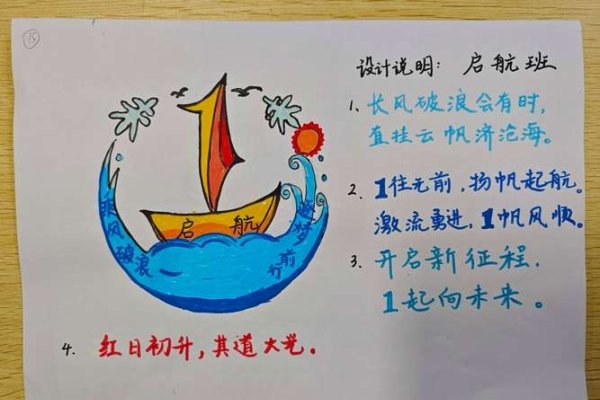 15
设计说明：启航班
1、长风破浪会有时，
直挂云帆济沧海。
2、1往无前，扬帆起航。
激流勇进，1帆风顺。
3、开启新征程，
1起向未来。
4、红日初升，其道大光。
启航
乘风破浪
逐梦前行